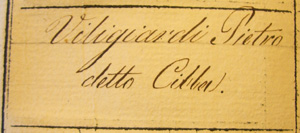 Viligiardi Pietro
detto Cibba.